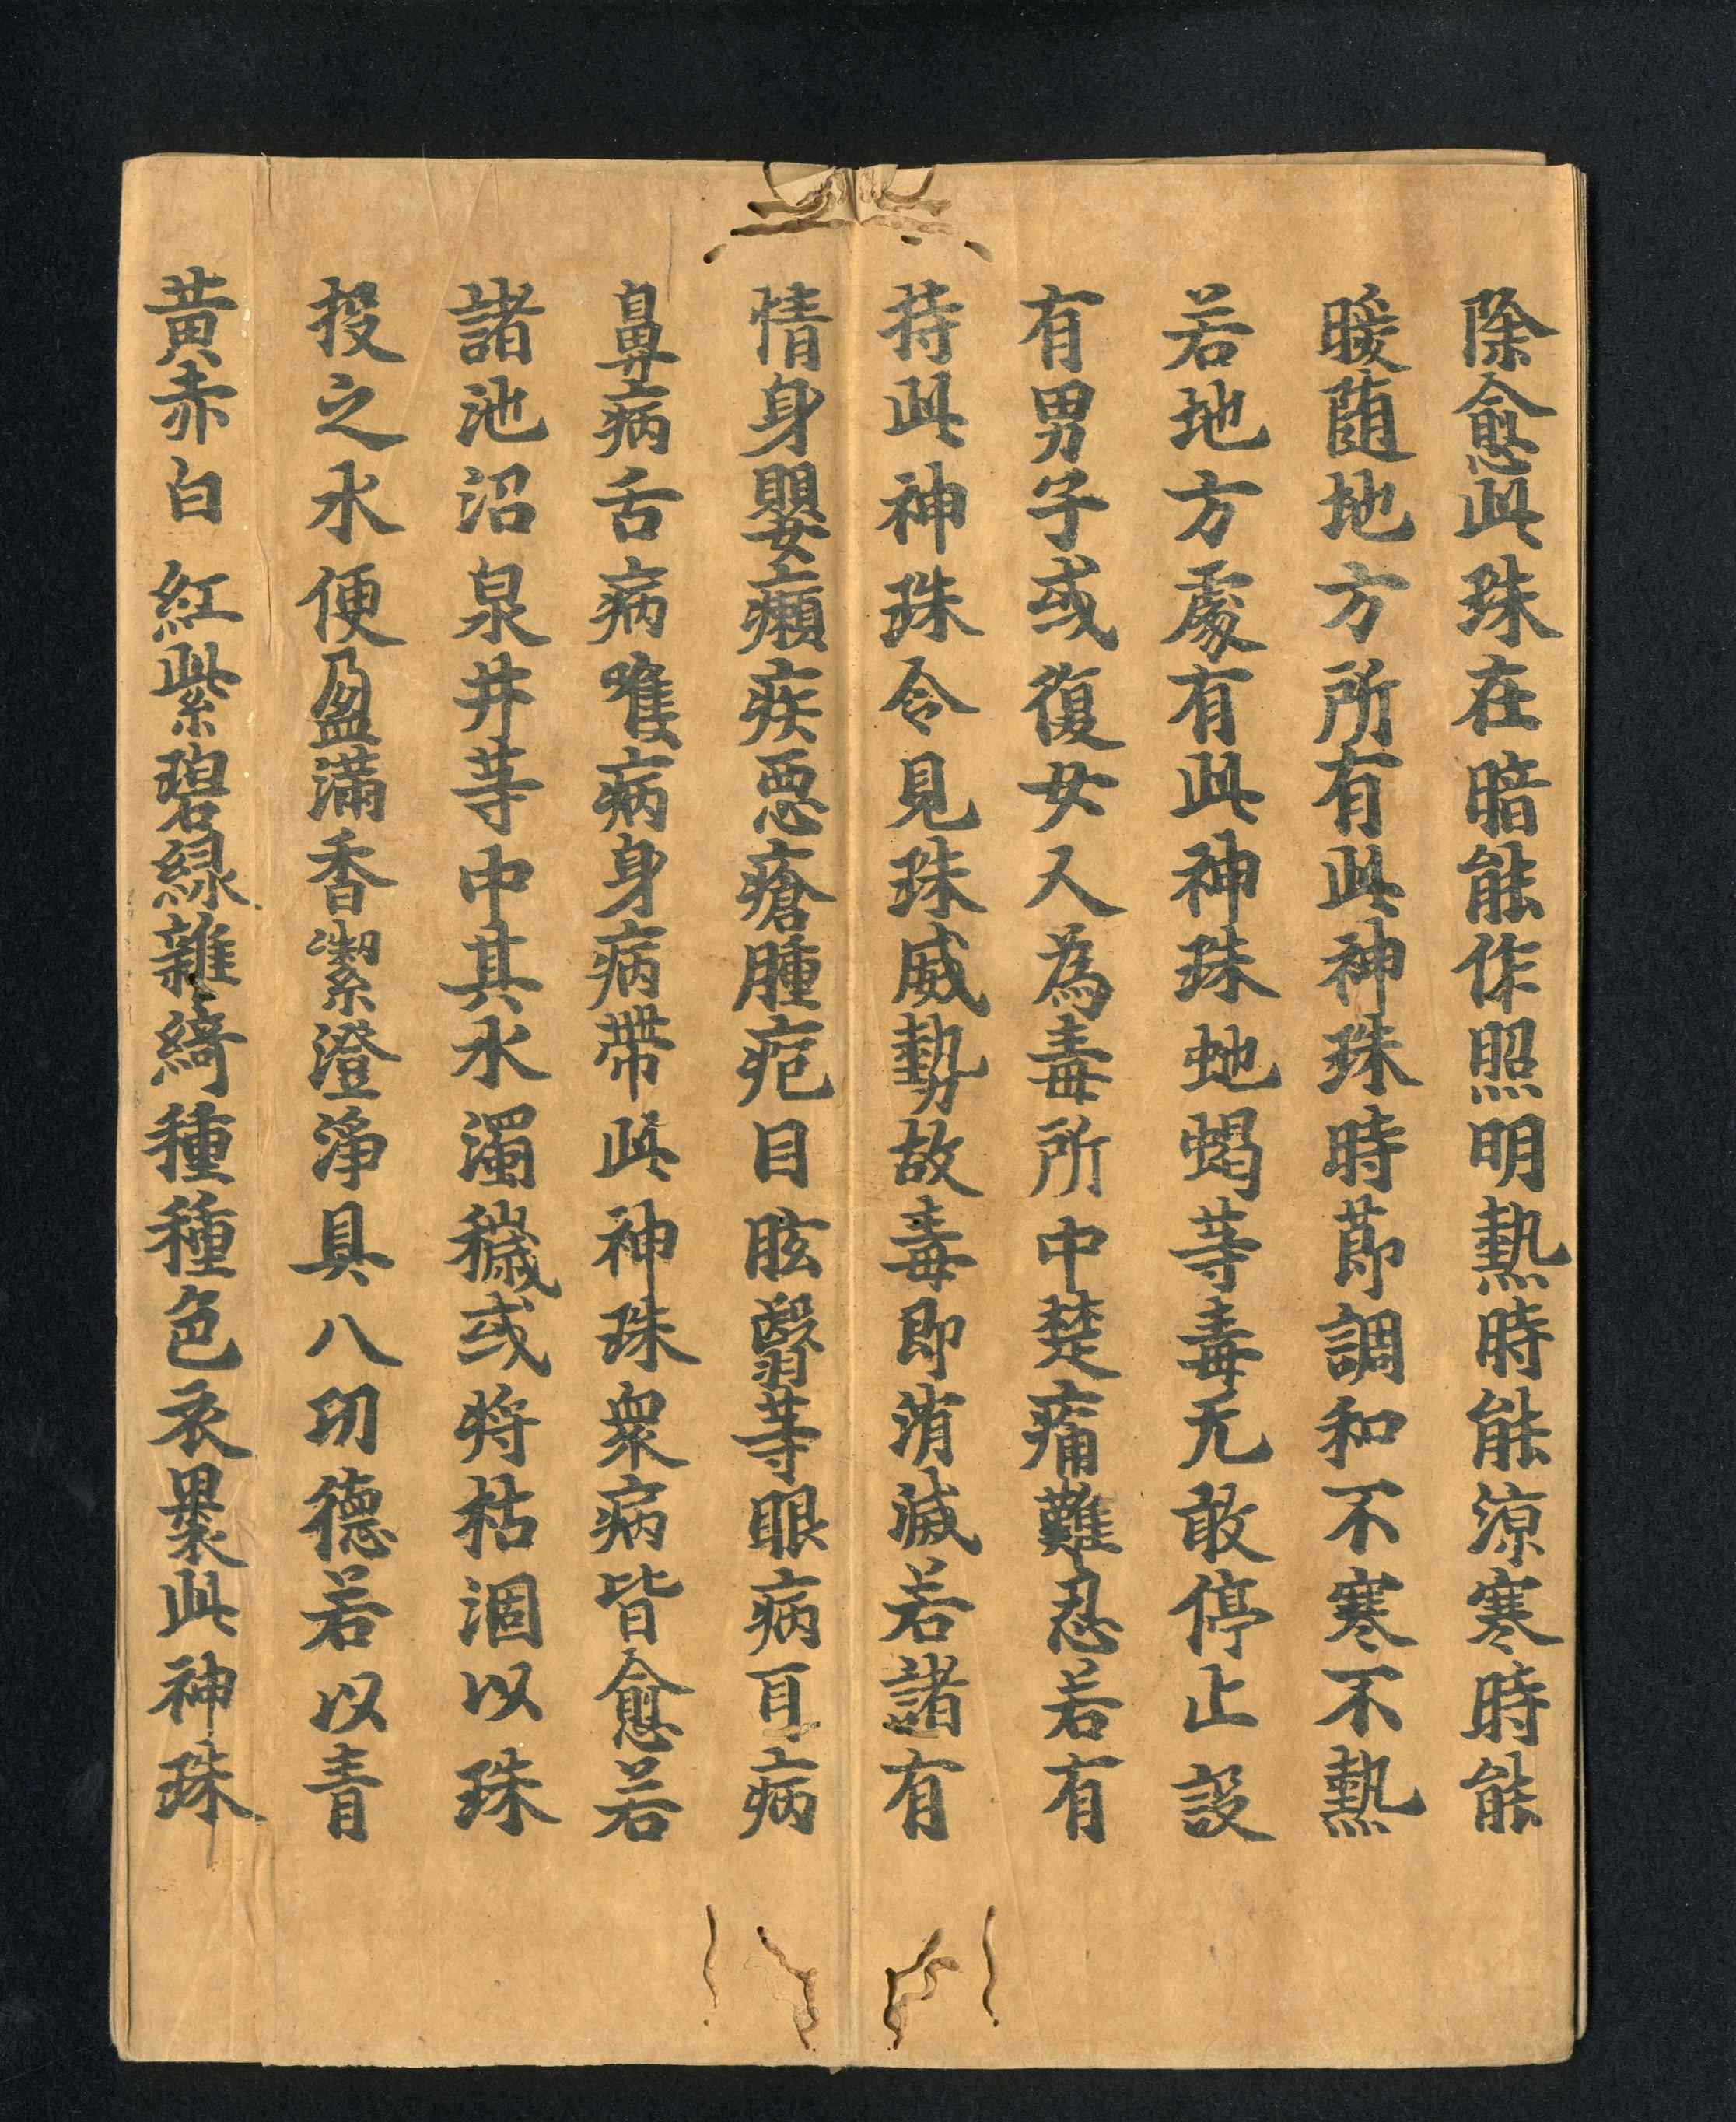 除愈此珠在暗能作照明熱時能涼寒時能
暖随地方所有此神珠時節調和不寒不熱
若地方處有此神珠虵蝎等毒无敢停止設
有男子或復女人為毒所中楚痛難忍若有
持此神珠令見珠威勢故毒即消滅若諸有
情身嬰癩疾惡瘡腫疱目眩瞖等眼病耳病
鼻病舌病喉病身病帶此神珠衆病皆愈若
諸池沼泉井等中其水濁穢或將枯涸以珠
投之水便盈滿香潔澄淨具八功德若以青
黃赤白紅紫碧緑雜綺種種色衣裹此神珠